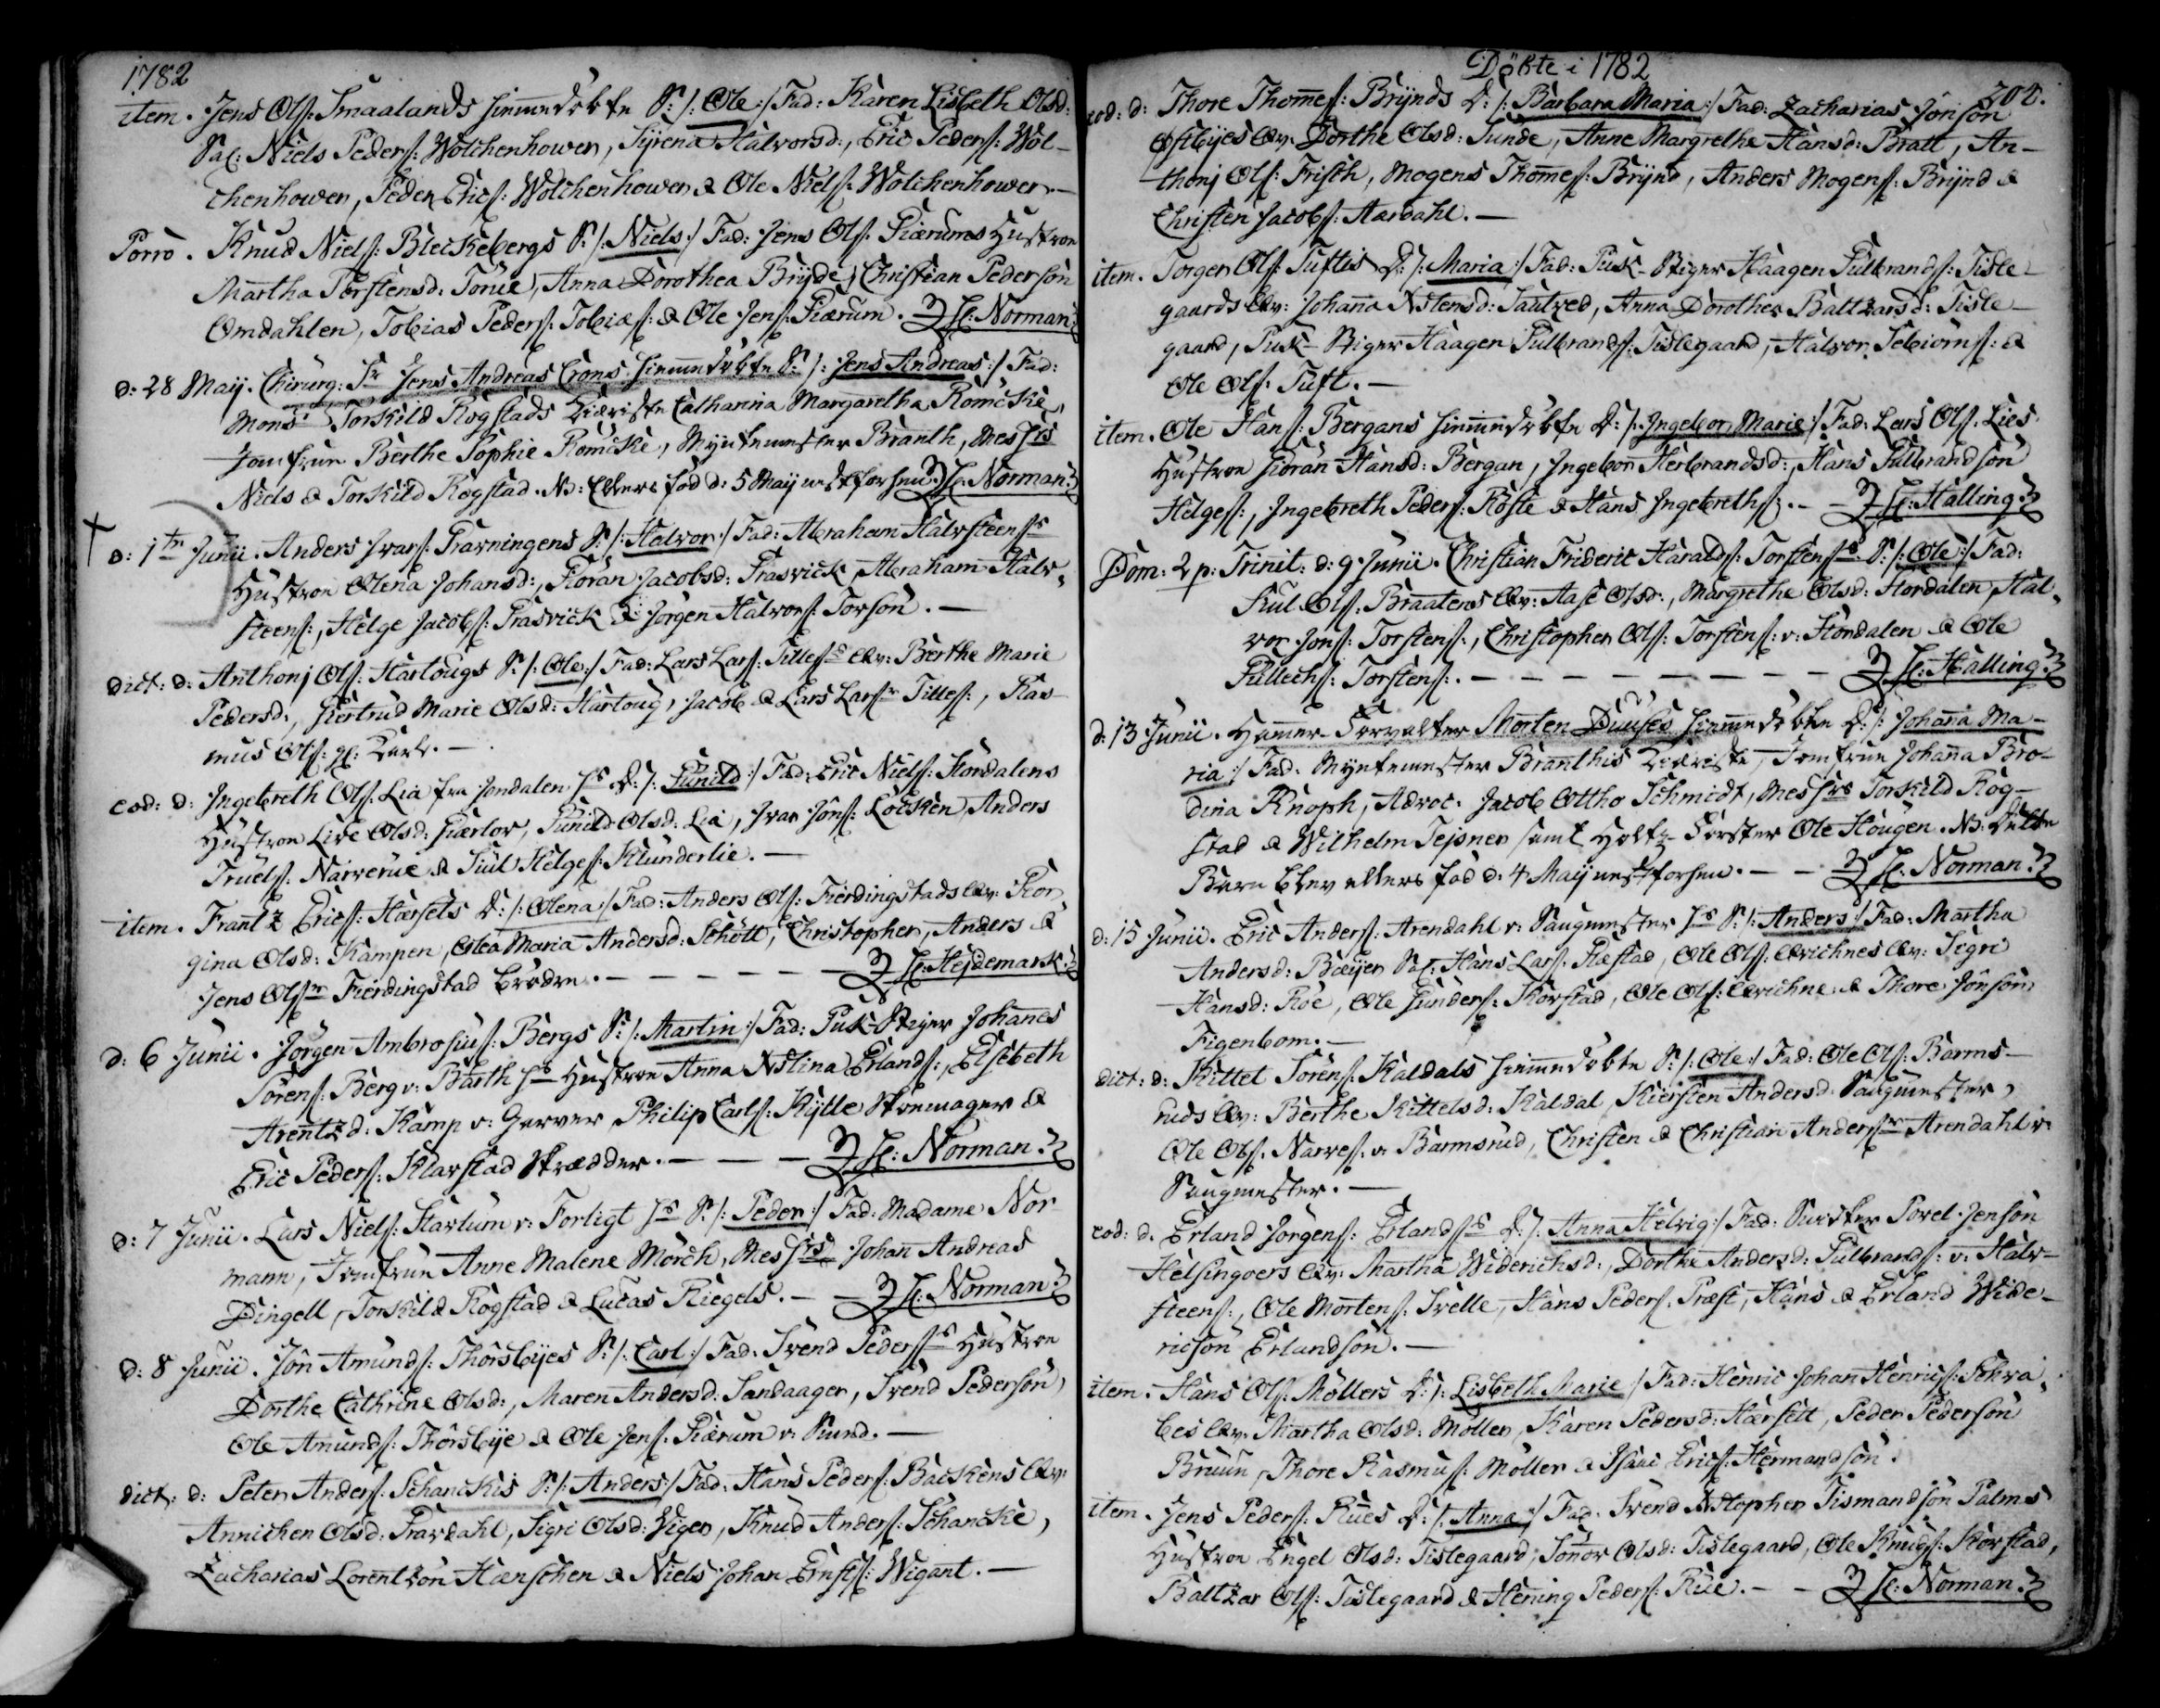 1782
item. Jens Ols: Smaalands hiemmedøbte S: /: Ole :/ Fad: Karen Lisbeth Olsd:
Sal: Niels Peders: Wølchenhower, Syrena Halvorsd:, Eric Peders: Wøl-
chenhower, Peder Erics: Wølchenhower & Ole Niels: Wølchenhower.—
Porro. Knud Niels: Bleckebergs S: /: Niels :/ Fad: Jens Ols: Kiærums Hustroe
Martha Torstensd: Torue, Anna Dorothea Bryde, Christian Pederson
Omdahlen, Tobias Peders: Tobiæs: & Ole Jens: Kiærum. H: Norman
d: 28 Maij. Chirurg: Sr Jens Andreas Crons hiemmedøbte S: /: Jens Andreas :/ Fad:
Monsr Torkild Rogstads Kiæriste Catharina Margaretha Romcke,
Jomfrue Berthe Sophie Romcke, Myntemester Branth, Messrs
Niels & Torkild Rogstad. NB: Ellers fød d: 5 Maij nestforhen. H: Norman
d: 1te Junii. Anders Ivars: Gravningens S: /: Halvor :/ Fad: Abraham Halvsteens:s
Hustroe Olena Johansd:, Gioran Jacobsd: Grasvick, Abraham Halv-
steens:, Helge Jacobs: Grasvick & Jørgen Halvors: Torson.—
dict: d: Anthonj Ols: Hartougs S: /: Ole :/ Fad: Lars Lars: Tilles:s Qv: Berthe Marie
Pedersd:, Giertrud Marie Olsd: Hartoug, Jacob & Lars Larsr Tilles:, Ras-
mus Ols:
eod: d: Ingebreth Ols: Lia fra Jondalen hs D: /: Gunild :/ Fad: Eric Niels: Hordalens
Hustroe Live Olsd: Giærlov, Gunild Olsd: Lia, Ivar Jons: Løcken, Anders
Truels: Narverue & Siul Helges: Klunderlie.—
item. Frantz Erics: Hærsets D: /: Olena :/ Fad: Anders Ols: Fierdingstads Qv: Kor-
gina Olsd: Kampen, Olea Maria Andersd: Schøtt, Christopher, Anders &
Jens Olsr Fierdingstad Brødre. — H: Hejdemark.
d: 6 Junii. Jørgen Ambrosius: Bergs S: /: Martin :/ Fad: Puk-Stiger Johanes
Sørens: Berg v: Barth hs Hustroe Anna Xstina Erlands:, Elsebeth
Arentzd: Kamp v: Garver, Philip Carls: Kylle Skoemager &
Eric Peders: Klavstad Skrædder. — H: Norman.
d: 7 Junii. Lars Niels: Skartum v: Forligt hs S: /: Peder :/ Fad: Madame Nor-
mann, Jomfrue Anne Malene Mørch, Messrs Johan Andreas
Dingell, Torkild Rogstad & Lucas Riegels. — H: Norman
d: 8 Junii. Jon Amunds: Thorsbyes S: /: Carl :/ Fad: Svend Peders:s Hustroe
Dorthe Cathrine Olsd:, Maren Andersd: Sandaager, Svend Pederson,
Ole Amunds: Thorsbye & Ole Jens: Kiærum v: Sund.—
dict: d: Peter Anders: Schanckis S: /: Anders :/ Fad: Hans Peders: Backens Qv:
Annichen Olsd: Gravdahl, Sigri Olsd: Viger, Knud Anders: Schancke,
Zacharias Lorentzon Hænschen & Niels Johan Ernsts: Wigant.—
Døbte i 1782
208.
eod: d: Thore Thomes: Brynds D: /: Barbara Maria :/ Fad: Zacharias Jonson
Østbyes Qv: Dorthe Olsd: Sunde, Anne Margrethe Hansd: Bratt, An-
thonj Ols: Frisch, Mogens Thomes: Brynd, Anders Mogens: Brynd &
Christen Jacobs: Aardahl.—
item. Torger Ols: Tuftis D: /: Maria :/ Fad: Puk-Stiger Haagen Gulbrands: Tisle-
gaards Qv: Johana Xstensd: Sautved, Anna Dorothea Baltzarsd: Tisle-
gaard, Puk-Stiger Haagen Gulbrands: Tislegaard, Halvor Tebiorns: &
Ole Ols: Tuft.—
item. Ole Hans: Bergans hiemmedøbte D: /: Ingebor Marie :/ Fad: Lars Ols: Lies
Hustroe Gioran Hansd: Bergan, Ingebor Herbrandsd:, Hans Gulbrandson
Helges:, Ingebreth Peders: Foste & Hans Ingebreths:.— H: Halling
Dom: 2 p: Trinit: d: 9 Junii. Christian Frideric Haralds: Torstens:s S: /: Ole :/ Fad:
Siul Ols: Braatens Qv: Aase Olsd:, Margrethe Olsd: Hordalen, Hal-
vor Jons: Torstens:, Christopher Ols: Torstens: v: Hordalen & Ole
Gullechs: Torstens:. — H: Halling
d: 13 Junii. Hamer-Forvalter Morten Duuses hiemmedøbte D: /: Johana Ma-
ria :/ Fad: Myntemester Branthis Kiæriste, Jomfrue Johana Bro-
dina Knoph, Advoc. Jacob Ottho Schmidt, Messrs Torkild Rog-
stad & Wilhelm Tejsner samt Holtz-Førster Ole Hougen. NB: Dette
Barn blev ellers fød d: 4 Maij nestforhen. — H: Norman.
d: 15 Junii. Eric Anders: Arendahl v: Saugmester hs S: /: Anders :/ Fad: Martha
Andersd: Bæyer Sal: Hans Lars: Hæstad, Ole Ols: Qvichnes Qv: Sigri
Hansd: Foe, Ole Gunders: Korstad, Ole Ols: Qvichne & Thore Jonson
Figenbom.—
dict: d: Kittel Sørens: Kaldals hiemmedøbte S: /: Ole :/ Fad: Ole Ols: Barms-
ruds Qv: Berthe Kittelsd: Kaldal, Kiersten Andersd: Saugmester,
Ole Ols: Narves: v: Barmsrud, Christen & Christian Andersr Arendahl v:
Saugmester.—
eod: d: Erland Jørgens: Erlands:s D: /: Anna Helvig :/ Fad: Povel Jenson
Helsingoers Qv: Martha Widerichsd:, Dorthe Andersd: Gulbrands: v: Halv-
steens:, Ole Mortens: Svelle, Hans Peders: Præst, Hans & Erland Wide-
ricson Erlandson.—
item. Hans Ols: Møllers D: /: Lisbeth Marie :/ Fad: Henric Johan Henrics: Schva-
bes Qv: Martha Olsd: Møller, Karen Pedersd: Hærsett, Peder Pederson
Bruun, Thore Rasmus: Møller & Isaac Erics: Hermandson.
item. Jens Peders: Rues D: /: Anna :/ Fad: Svend Xstopher Tismandson Palms
Hustroe Engel Olsd: Tislegaard, Sonor Olsd: Tislegaard, Ole Knuds: Korstad,
Baltzar Ols: Tislegaard & Hening Peders: Rue. — H: Norman.